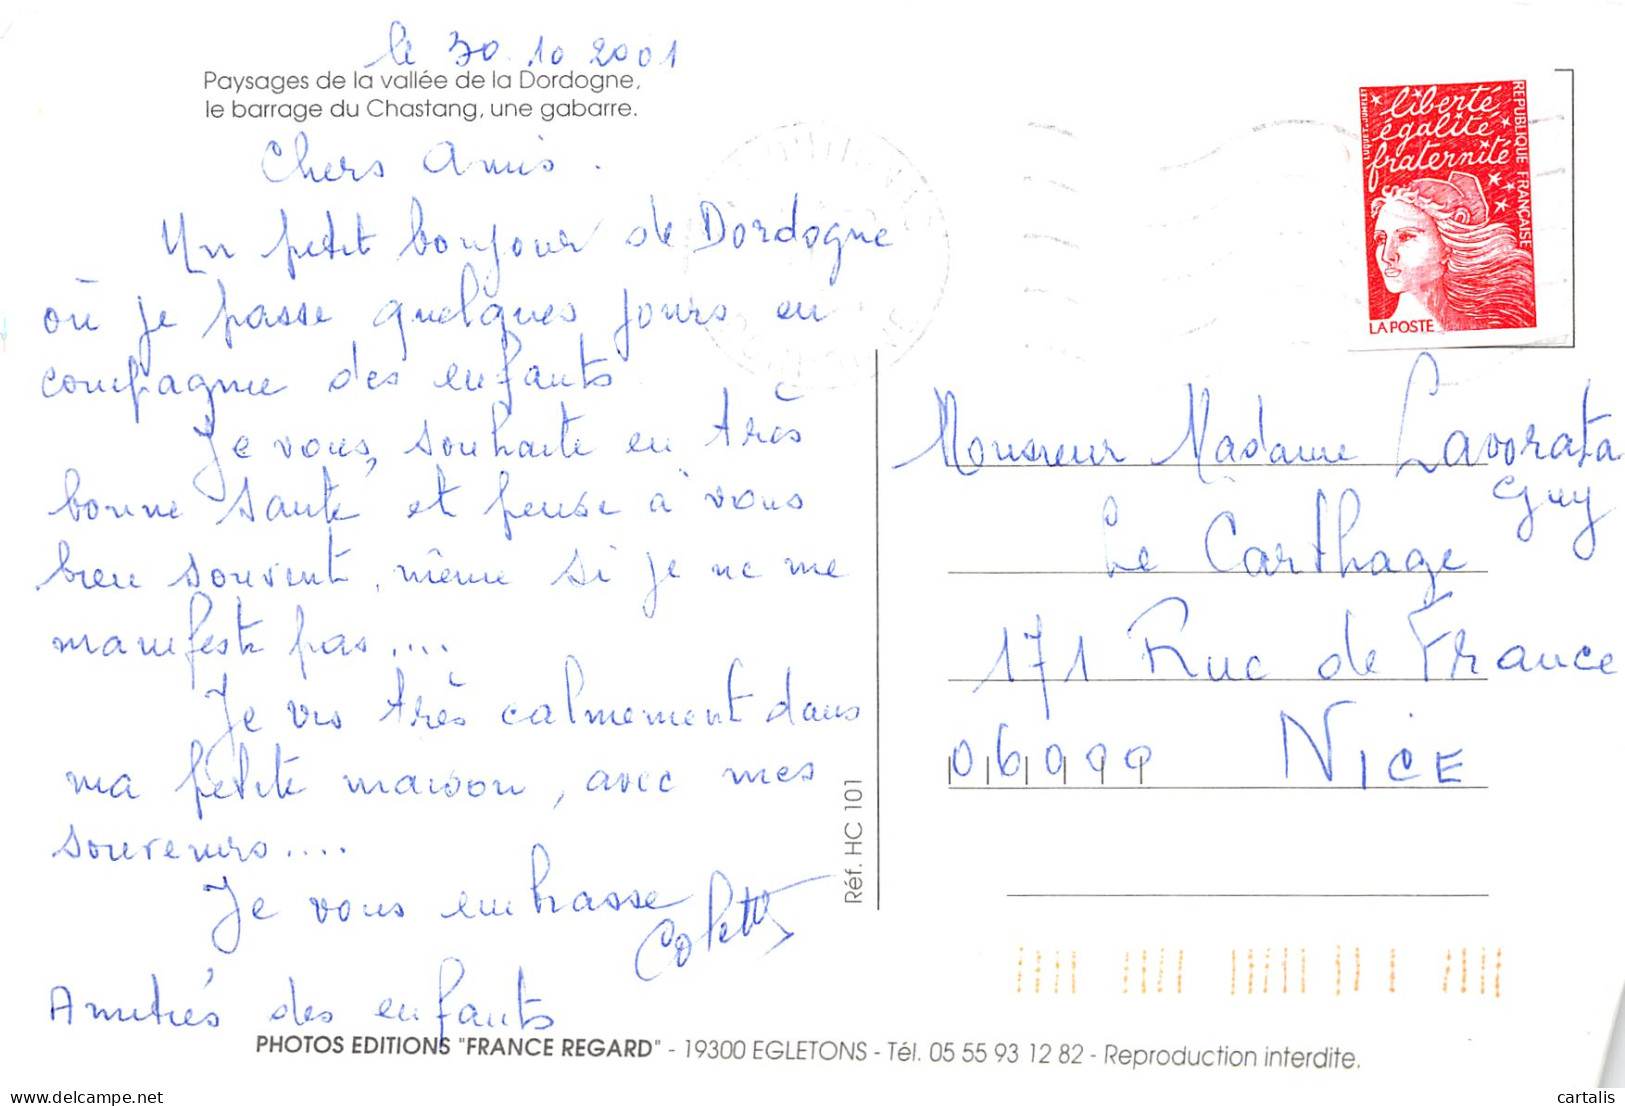 le 30.10.2001
Paysages de la vallée de la Dordogne,
le barrage du Chastang, une gabarre.
Chers Amis.
Un petit bonjour de Dordogne
où je passe quelques jours en
compagnie des enfants
Je vous souhaite en très
bonne santé et pense à vous
bien souvent, même si je ne me
manifeste pas....
Je vis très calmement dans
ma petite maison, avec mes
souvenirs....
Je vous embrasse
Colette
Amitiés des enfants
PHOTOS EDITIONS "FRANCE REGARD" - 19300 EGLETONS - Tél. 05 55 93 12 82 - Reproduction interdite.
Réf. HC 101
liberté
égalité
fraternité
RÉPUBLIQUE FRANÇAISE
LA POSTE
Monsieur Madame Lavorata
Guy
Le Carthage
171 Rue de France
06000 NICE
cartalis